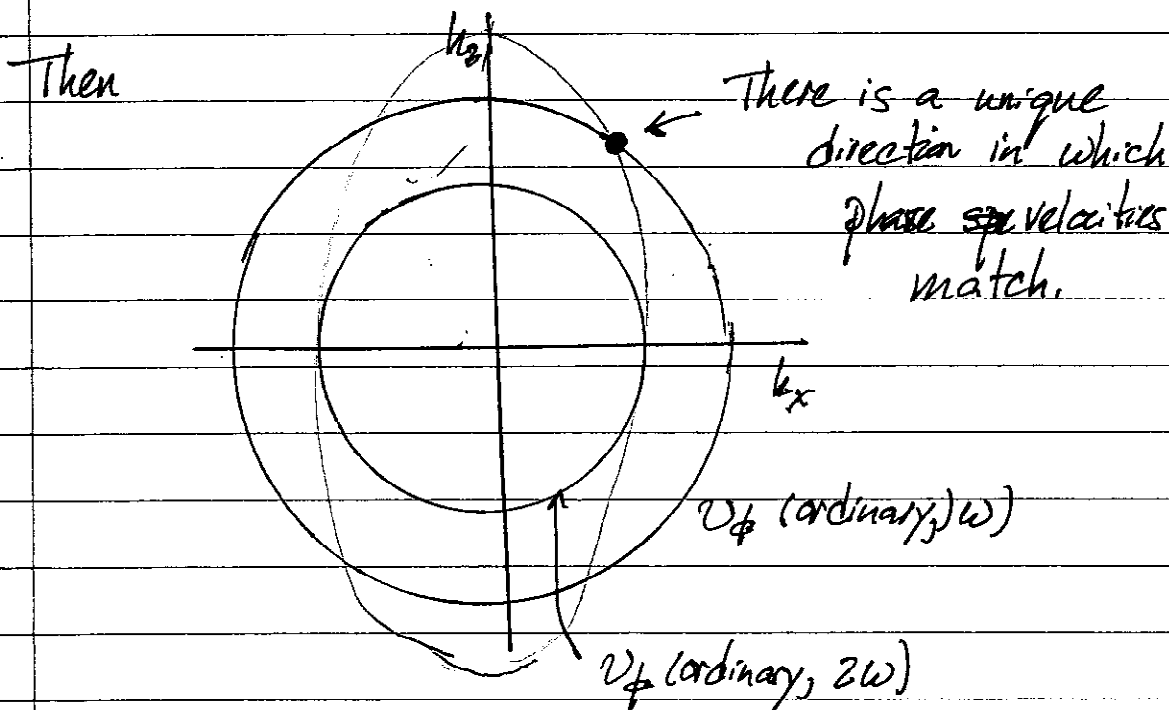 Then
k_z
There is a unique
direction in which
phase velocities
match.
k_x
v_ϕ (ordinary, ω)
v_ϕ (ordinary, 2ω)